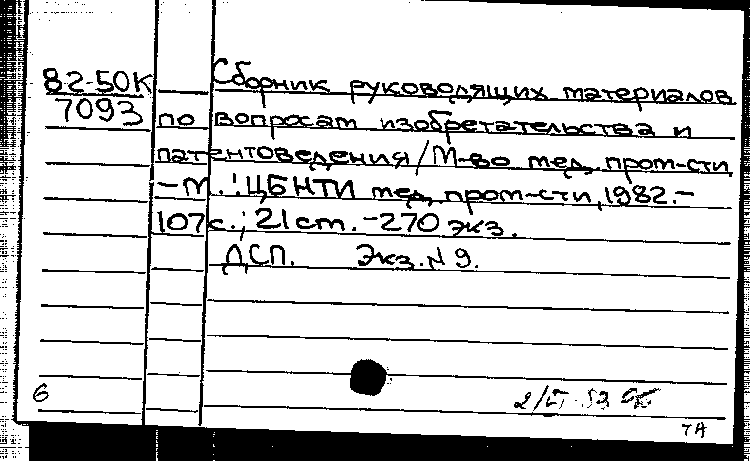 82-50К Сборник руководящих материалов
7093 по вопросам изобретательства и
патентоведения/М-во мед. пром-сти
-М.:ЦБНТИ мед. пром-сти, 1982.-
107с.; 21 cm. -270 экз.
ДСП. Экз. N 9.
6
7А